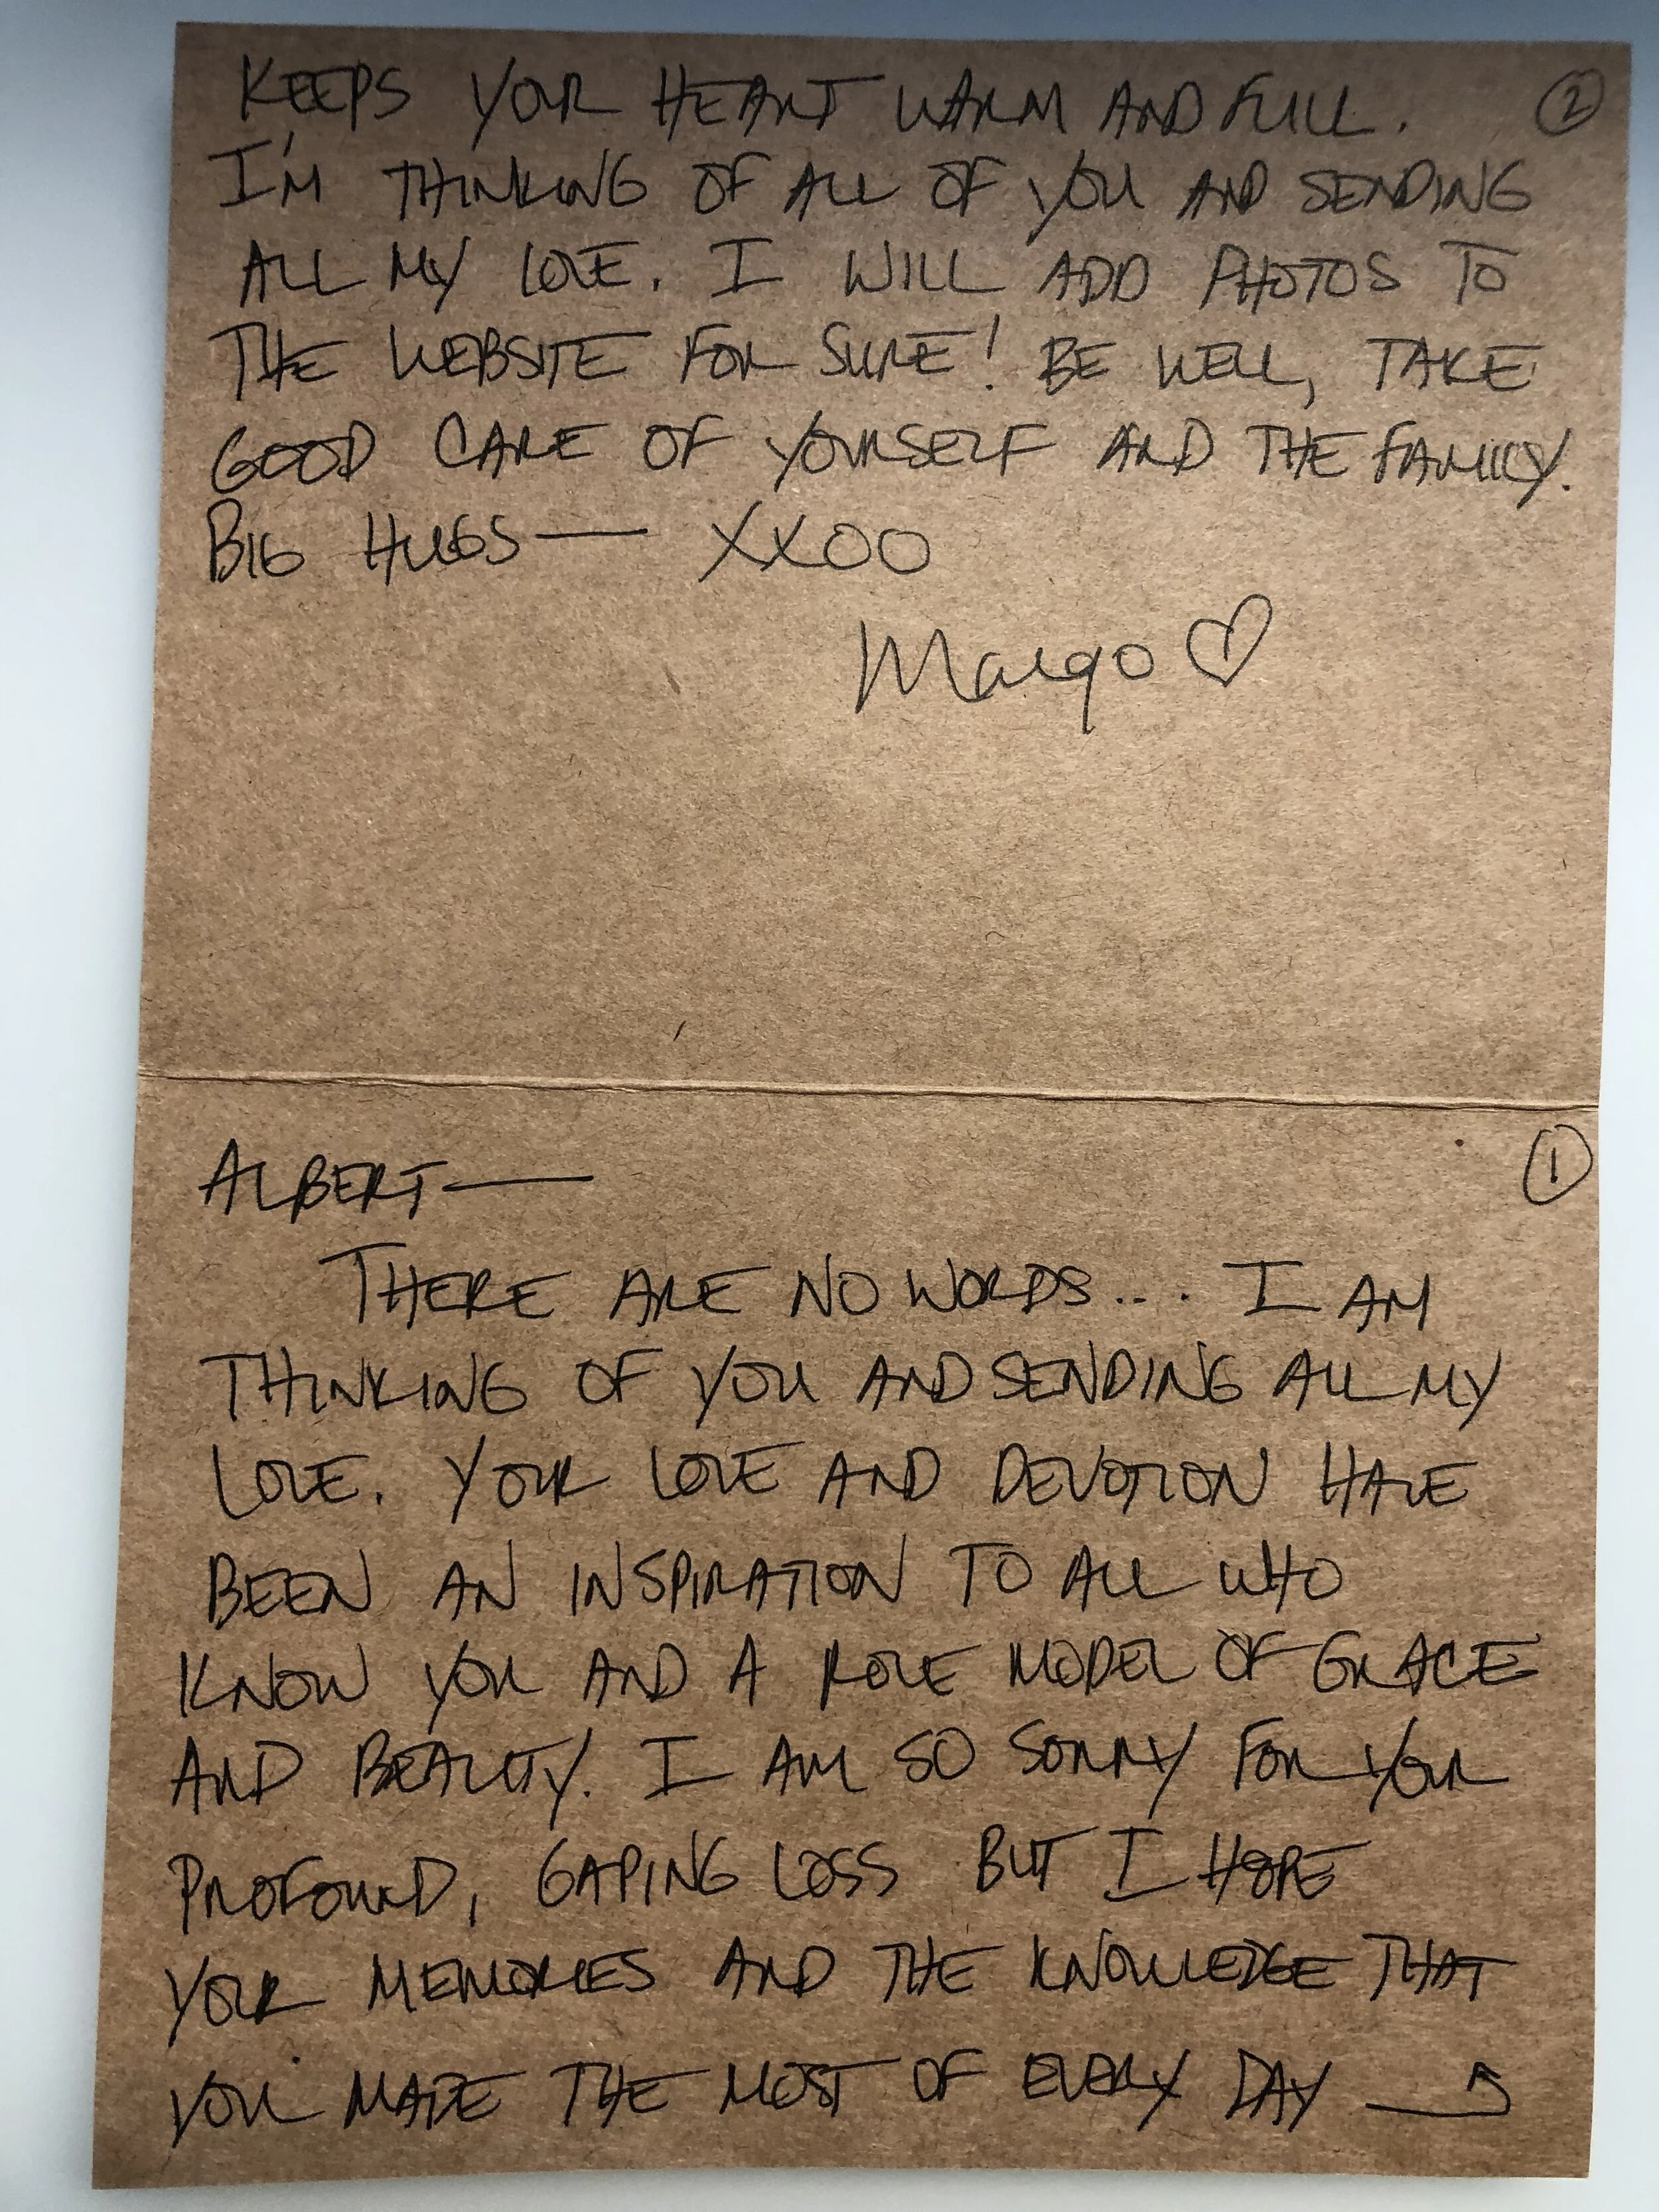 ①
ALBERT—
THERE ARE NO WORDS... I AM
THINKING OF YOU AND SENDING ALL MY
LOVE. YOUR LOVE AND DEVOTION HAVE
BEEN AN INSPIRATION TO ALL WHO
KNOW YOU AND A ROLE MODEL OF GRACE
AND BEAUTY. I AM SO SORRY FOR YOUR
PROFOUND, GAPING LOSS BUT I HOPE
YOUR MEMORIES AND THE KNOWLEDGE THAT
YOU MADE THE MOST OF EVERY DAY
②
KEEPS YOUR HEART WARM AND FULL.
I'M THINKING OF ALL OF YOU AND SENDING
ALL MY LOVE. I WILL ADD PHOTOS TO
THE WEBSITE FOR SURE! BE WELL, TAKE
GOOD CARE OF YOURSELF AND THE FAMILY.
BIG HUGS— XXOO
Margo ♡